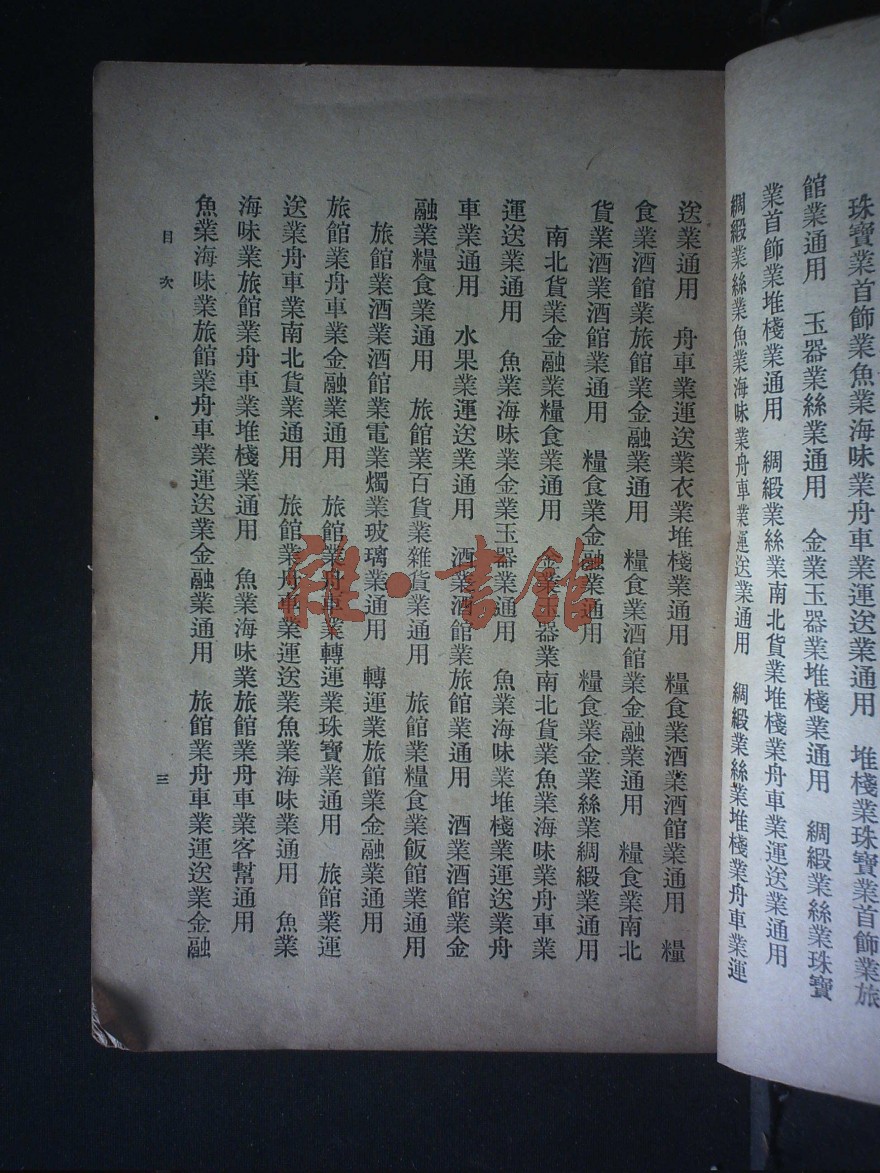 珠寶業首飾業魚業海味業舟車業運送業通用　堆棧業珠寶業首飾業旅
館業通用　玉器業絲業通用　金業玉器業堆棧業通用　綢緞業絲業珠寶
業首飾業堆棧業通用　綢緞業絲業南北貨業堆棧業舟車業運送業通用
綢緞業絲業魚業海味業舟車業運送業通用　綢緞業絲業堆棧業舟車業運
送業通用　舟車業運送業衣業堆棧業通用　糧食業酒業酒館業通用　糧
食業酒館業旅館業金融業通用　糧食業酒館業金融業通用　糧食業南北
貨業酒業酒館業通用　糧食業金融業通用　糧食業金業絲業綢緞業通用
南北貨業金融業糧食業通用　金業玉器業南北貨業魚業海味業舟車業
運送業通用　魚業海味業金業玉器業通用　魚業海味業堆棧業運送業舟
車業通用　水果業運送業通用　酒業酒館業旅館業通用　酒業酒館業金
融業糧食業通用　旅館業百貨業雜貨業通用　旅館業糧食業飯館業通用
旅館業酒業酒館業電業燭業玻璃業通用　轉運業旅館業金融業通用
旅館業舟車業金融業通用　旅館業舟車業轉運業珠寶業通用　旅館業運
送業舟車業南北貨業通用　旅館業舟車業運送業魚業海味業通用　魚業
海味業旅館業舟車業堆棧業通用　魚業海味業旅館業舟車業客幫通用
魚業海味業旅館業舟車業運送業金融業通用　旅館業舟車業運送業金融
目次
三
雜·書館